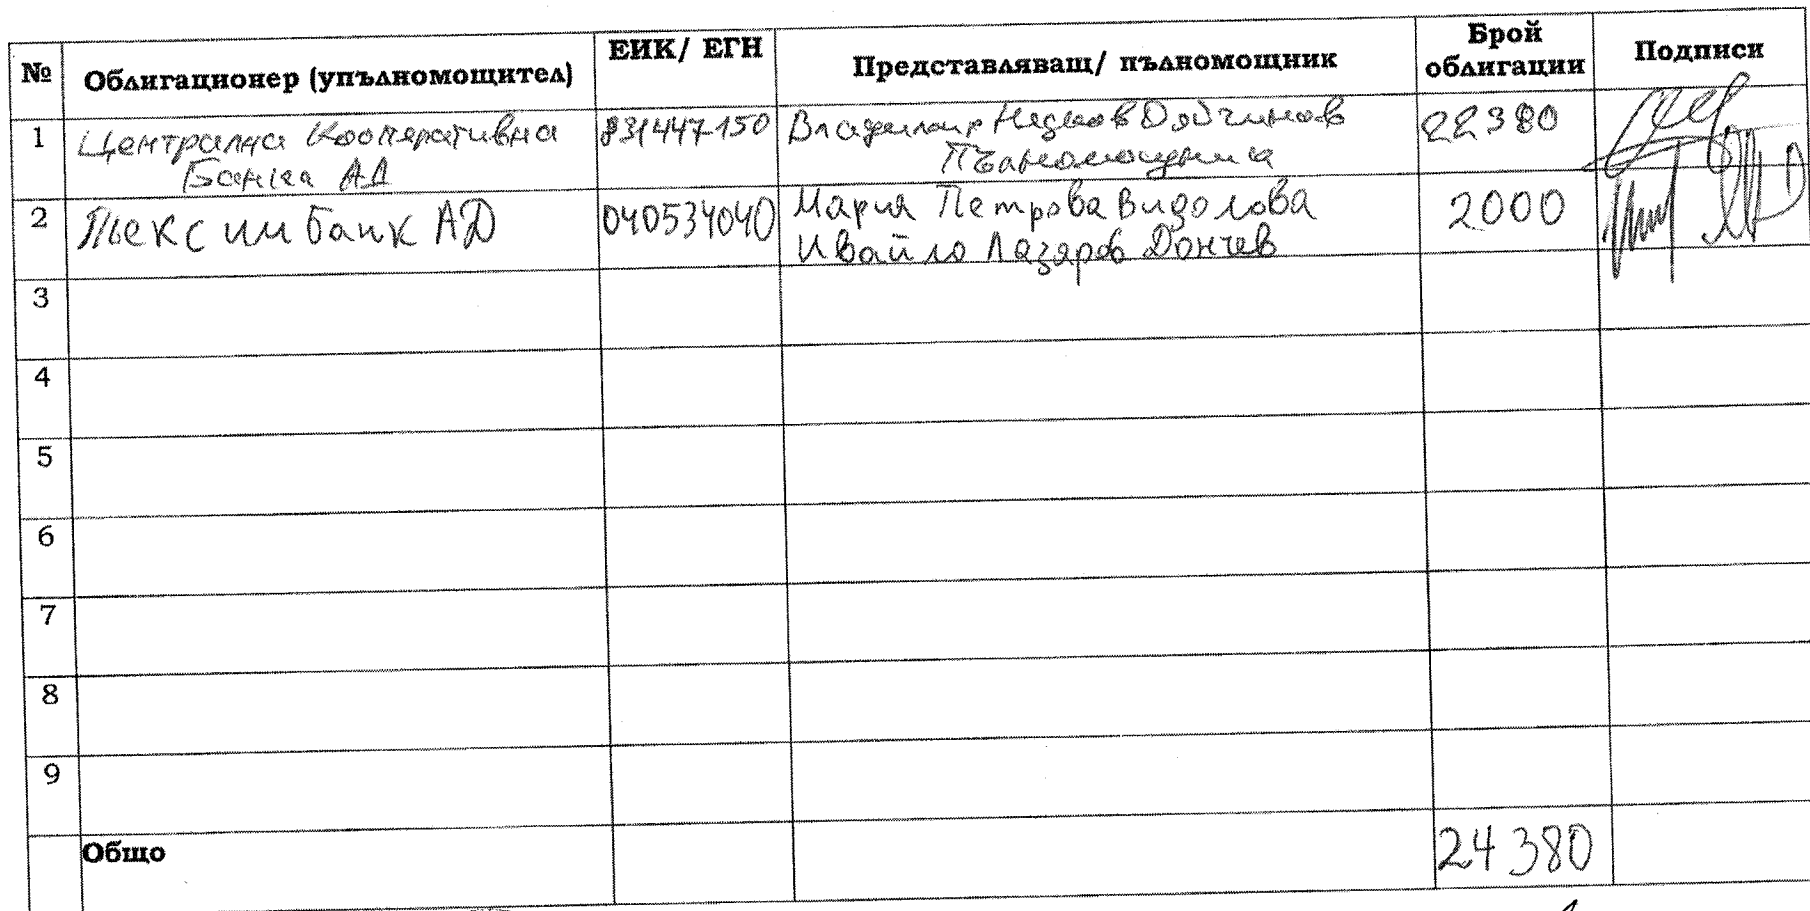 № Облигационер (упълномощител) ЕИК/ ЕГН Представляващ/ пълномощник Брой облигации Подписи
1 Централна Кооперативна 831447150 Владимир Недков Дойчинов 22380
Банка АД Пълномощник
2 Тексим Банк АД 040534040 Мария Петрова Видолова 2000
Ивайло Лазаров Дончев
3
4
5
6
7
8
9
Общо 24 380